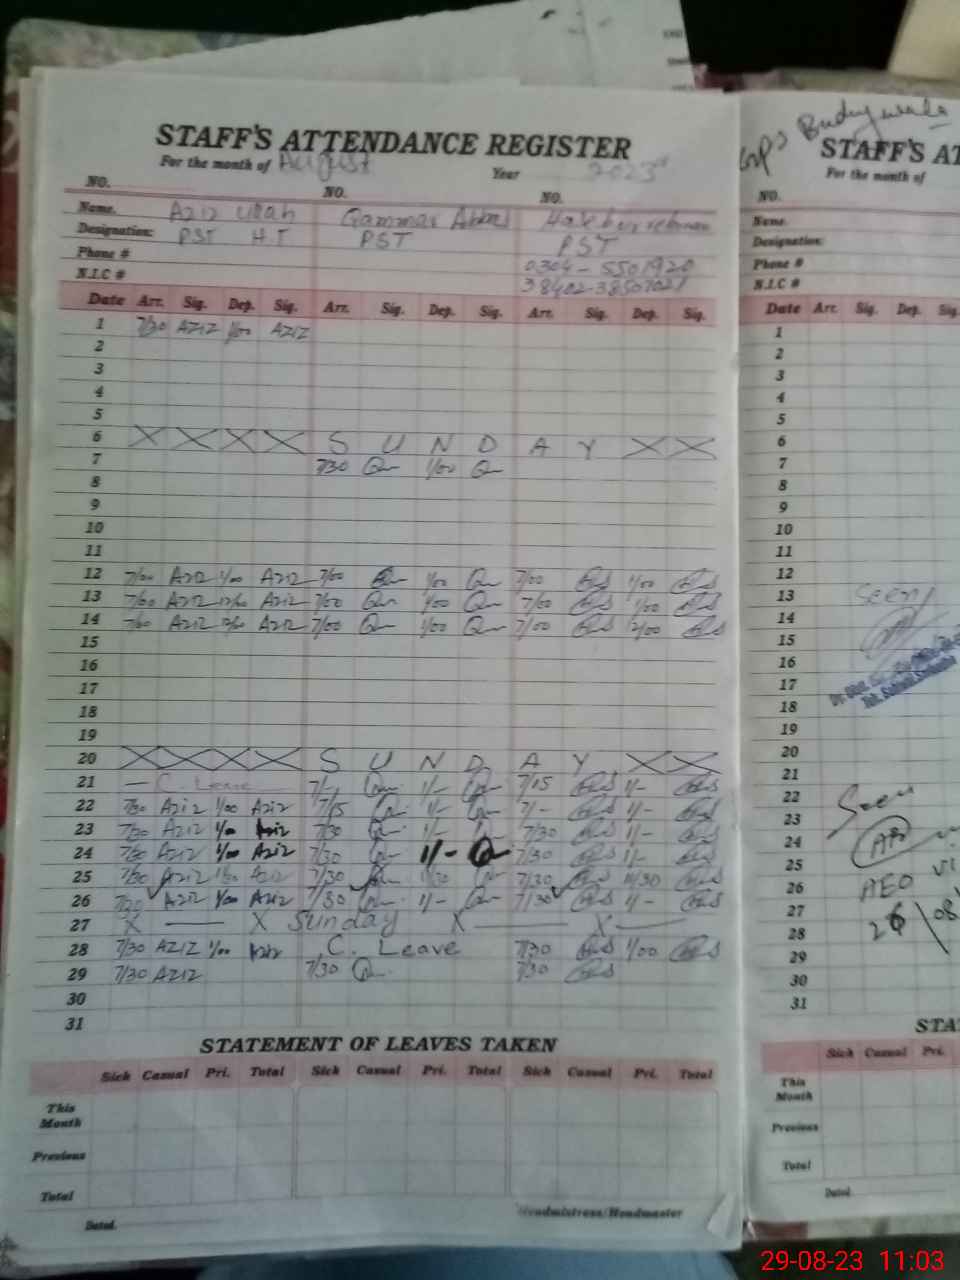 STAFF'S ATTENDANCE REGISTER
For the month of August Year 2023
NO. NO. NO.
Name. Aziz Ullah Qammar Abbas
Designation: PST H.T PST PST
Phone # 0304-5501920
N.I.C # 38402-3850702
Date Arr. Sig. Dep. Sig. Arr. Sig. Dep. Sig. Arr. Sig. Dep. Sig.
1 7/30 AZIZ 1/00 AZIZ
2
3
4
5
6 X X X X S U N D A Y X X
7 7/30 1/00
8
9
10
11
12 7/00 AZIZ 1/00 AZIZ 7/00 1/00 7/00 1/00
13 7/00 AZIZ 12/00 AZIZ 7/00 1/00 7/00 1/00
14 7/00 AZIZ 12/00 AZIZ 7/00 1/00 7/00 12/00
15
16
17
18
19
20 X X X X S U N D A Y X X
21 — C. Leave 7/- 1/- 7/15 1/-
22 7/30 Aziz 1/00 Aziz 7/15 1/- 7/- 1/-
23 7/30 Aziz 1/00 Aziz 7/30 1/- 7/30 1/-
24 7/30 Aziz 1/00 Aziz 7/30 1/- 7/30 1/-
25 7/30 Aziz 11/30 Aziz 7/30 11/30 7/30 11/30
26 7/30 Aziz 1/00 Aziz 7/30 1/- 7/30 1/-
27 X — X Sunday X — X —
28 7/30 AZIZ 1/00 Aziz C. Leave 7/30 1/00
29 7/30 AZIZ 7/30 7/30
30
31
STATEMENT OF LEAVES TAKEN
Sick Casual Pri. Total Sick Casual Pri. Total Sick Casual Pri. Total
This Month
Previous
Total
Dated. Headmistress/Headmaster
STAFF'S AT
For the month of
NO.
Name.
Designation:
Phone #
N.I.C #
Date Arr. Sig. Dep. Sig.
1
2
3
4
5
6
7
8
9
10
11
12
13 Seen
14
15
16
17
18
19
20
21
22 Seen
23
24
25
26 AEO
27 26/08
28
29
30
31
STA
Sick Casual Pri.
This Month
Previous
Total
Dated
29-08-23 11:03